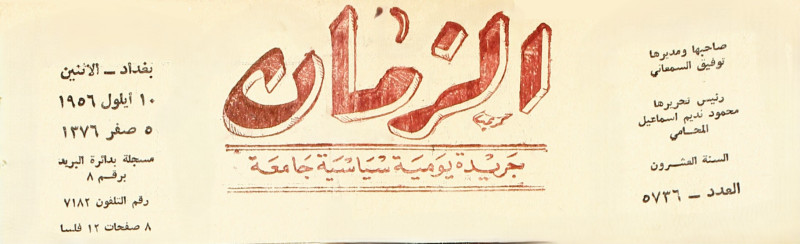 صاحبها ومديرها
توفيق السمعاني
رئيس تحريرها
محمود نديم اسماعيل
المحامي
السنة العشرون
العدد – ٥٧٣٦
الزمان
جريدة يومية سياسية جامعة
بغداد – الاثنين
١٠ أيلول ١٩٥٦
٥ صفر ١٣٧٦
مسجلة بدائرة البريد
برقم ٨
رقم التلفون ٧١٨٢
٨ صفحات ١٢ فلسا